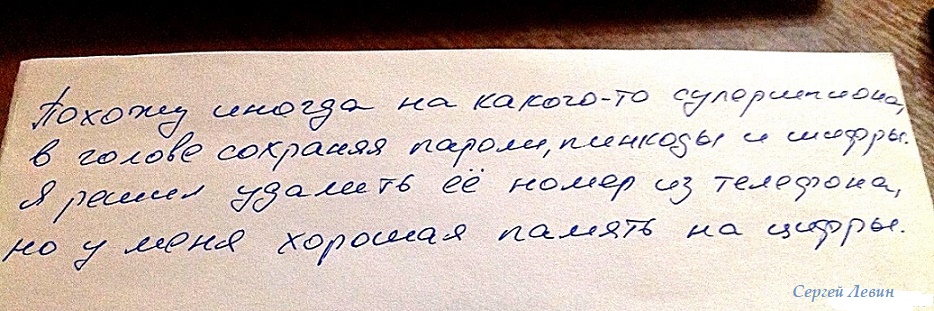 Похожу иногда на какого-то супершпиона,
в голове сохраняя пароли, пинкоды и шифры.
Я решил удалить её номер из телефона,
но у меня хорошая память на цифры.
Сергей Левин